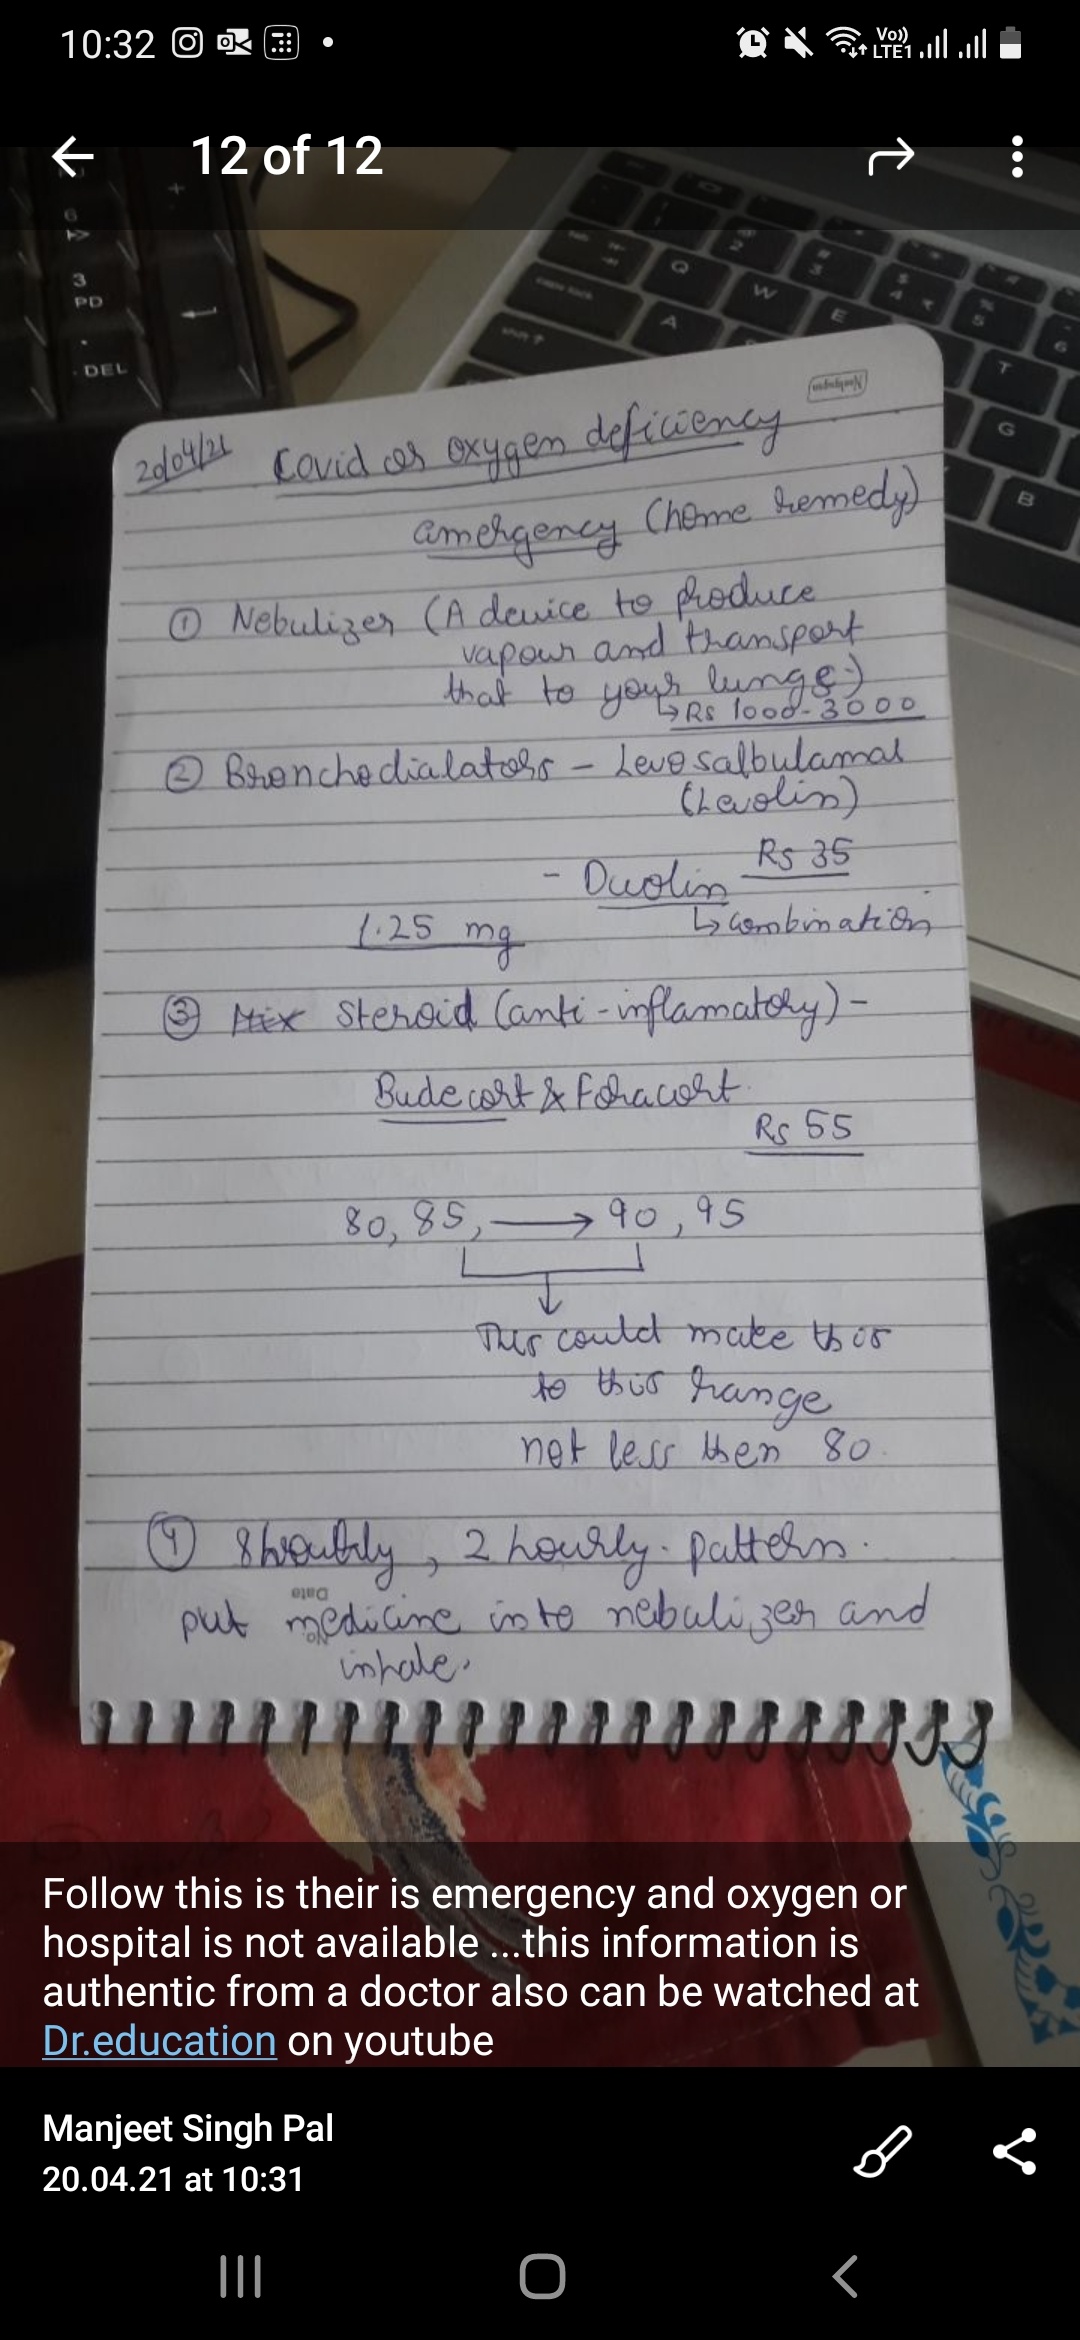 10:32
Vo))
LTE1
12 of 12
6
3
PD
.
DEL
caps lock
shift
Q
W
E
A
@
2
#
3
$
4
%
5
6
T
G
B
20/04/21 Covid or oxygen deficiency
amergency (home remedy)
① Nebulizer (A device to produce
vapour and transport
that to your lungs.)
↳ Rs 1000-3000
② Bronchodialators - Levosalbulamal
(Levolin)
- Duolin Rs 35
↳ combination
1.25 mg
③ Mix Steroid (anti-inflamatory) -
Budecort & Foracort.
Rs 55
80, 85, → 90, 95
This could make this
to this range
not less then 80.
④ 8 hourly, 2 hourly. pattern.
Date
put medicine into nebulizer and
No
inhale.
Follow this is their is emergency and oxygen or
hospital is not available ...this information is
authentic from a doctor also can be watched at
Dr.education on youtube
Manjeet Singh Pal
20.04.21 at 10:31